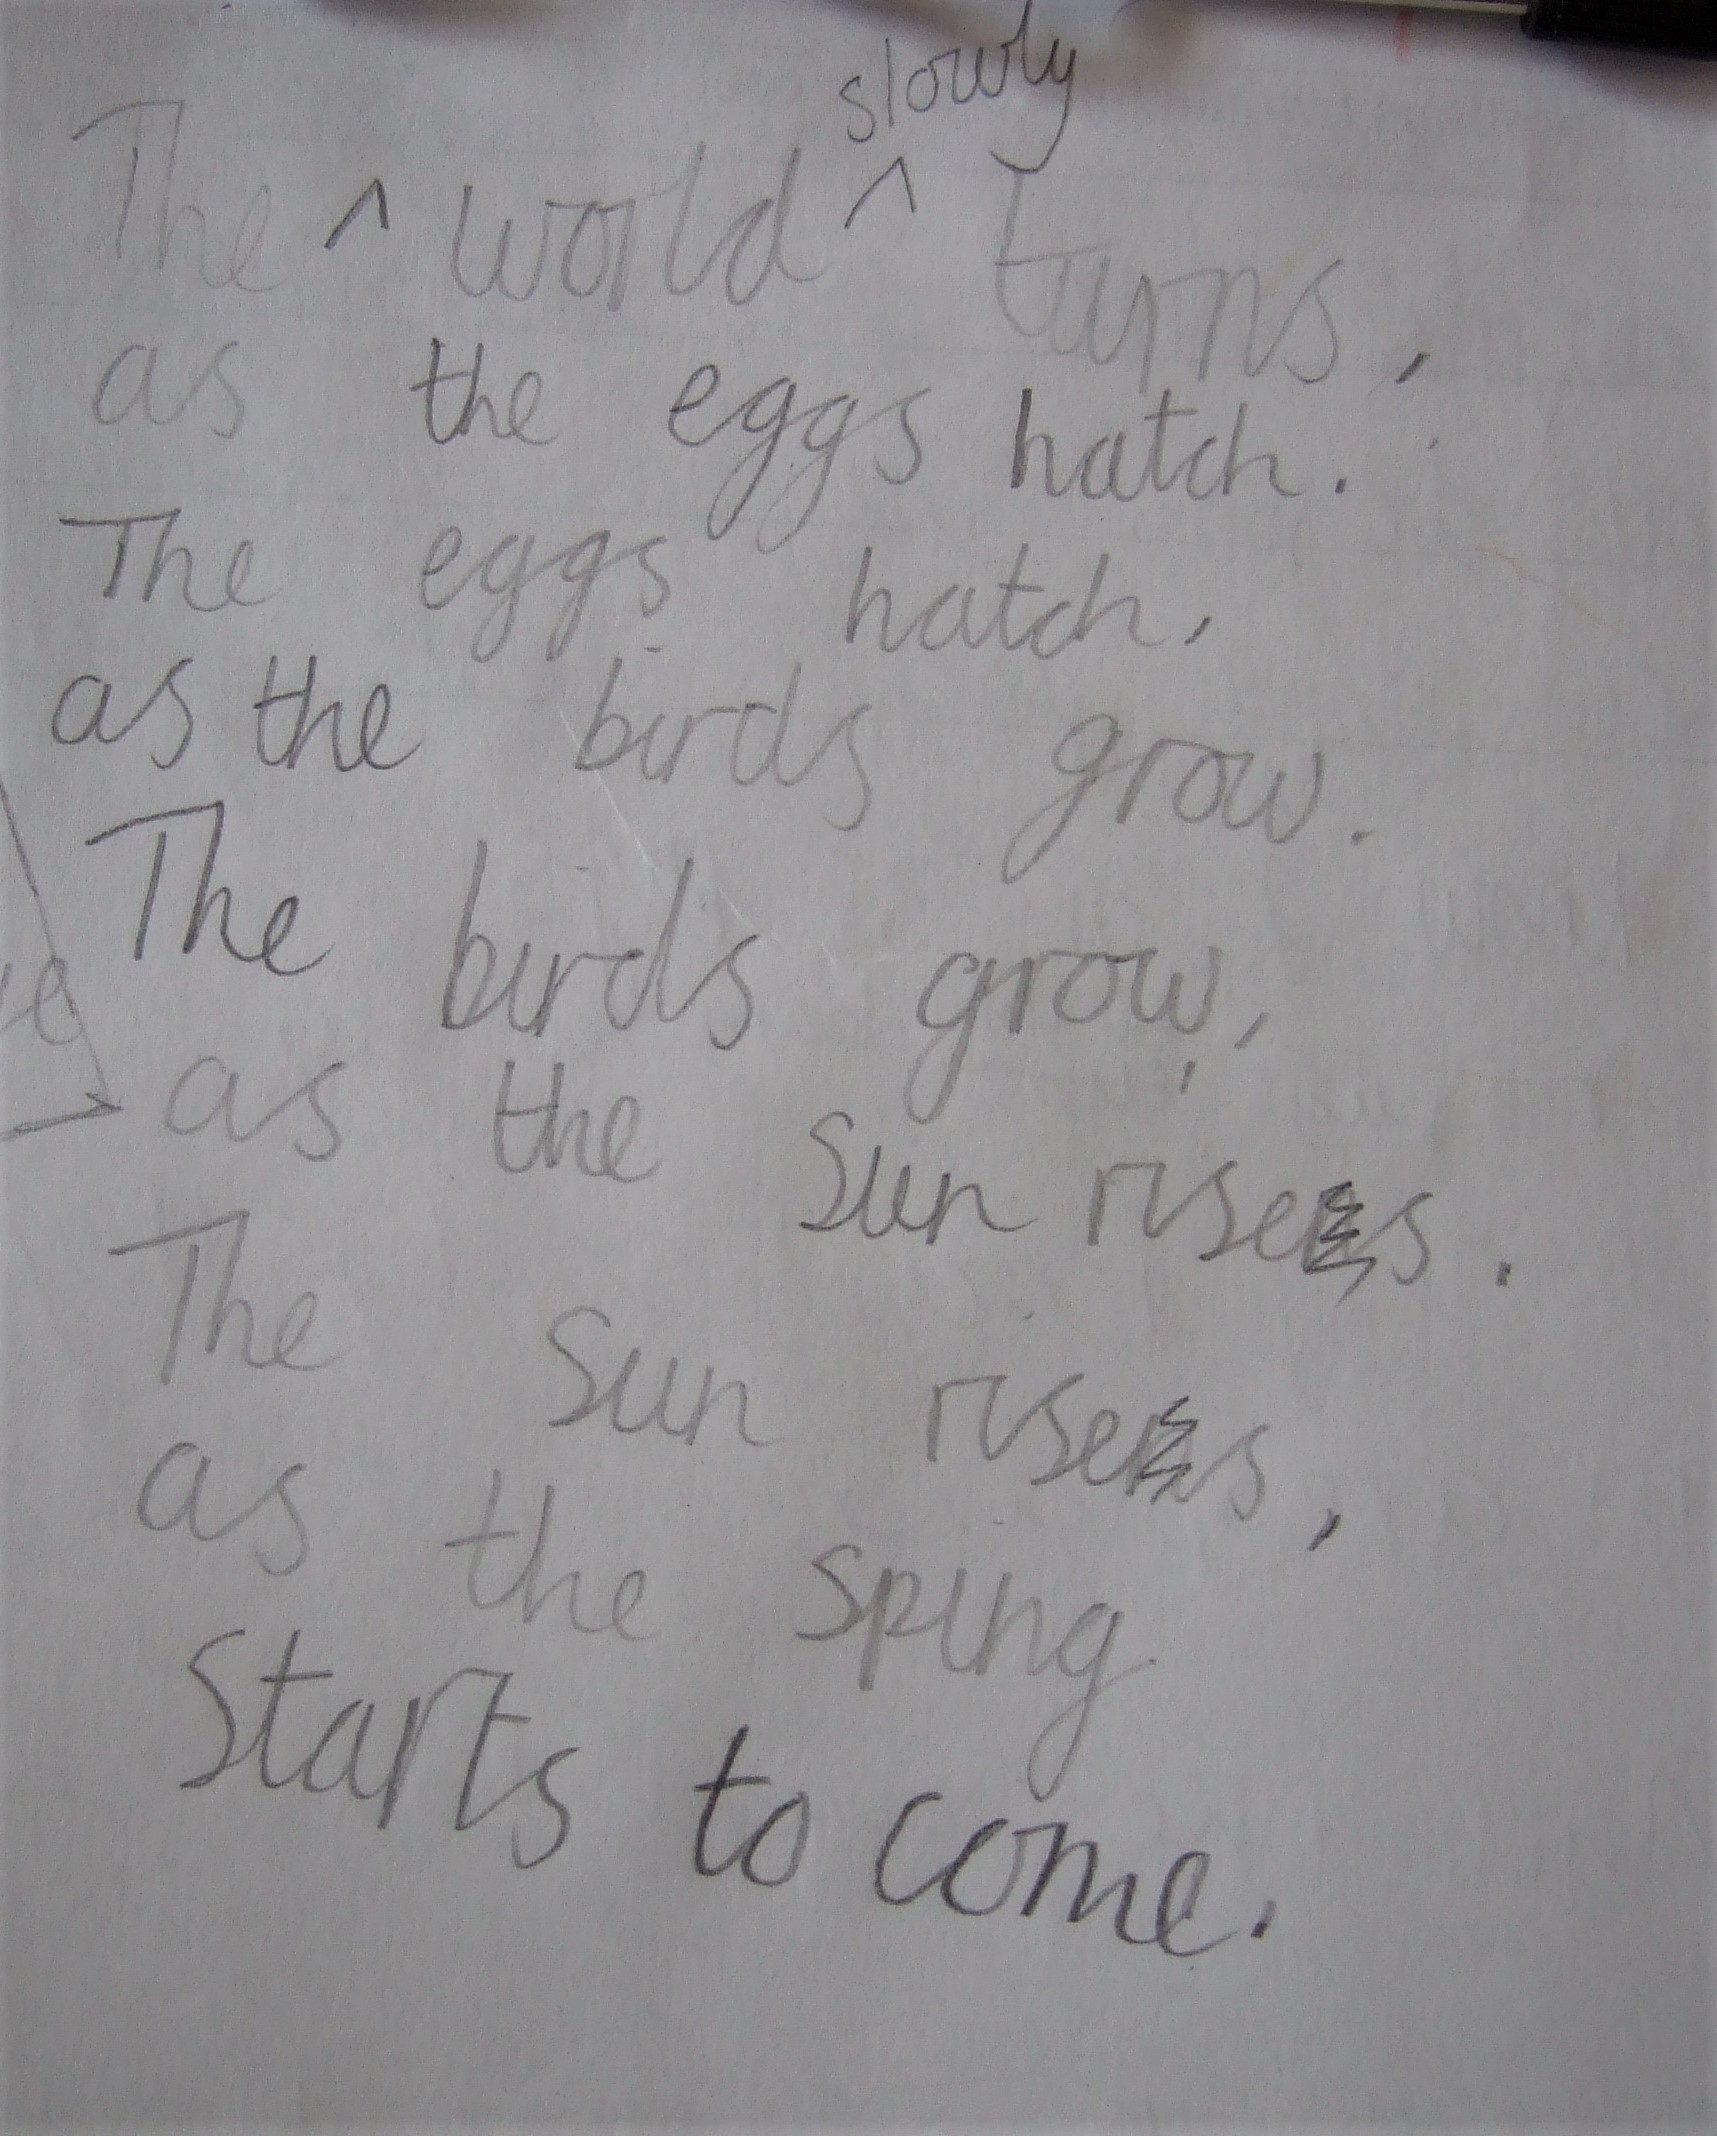 slowly
The ^ world ^ turns,
as the eggs hatch.
The eggs hatch,
as the birds grow.
The birds grow,
as the Sun rises.
The Sun rises,
as the sping
Starts to come.